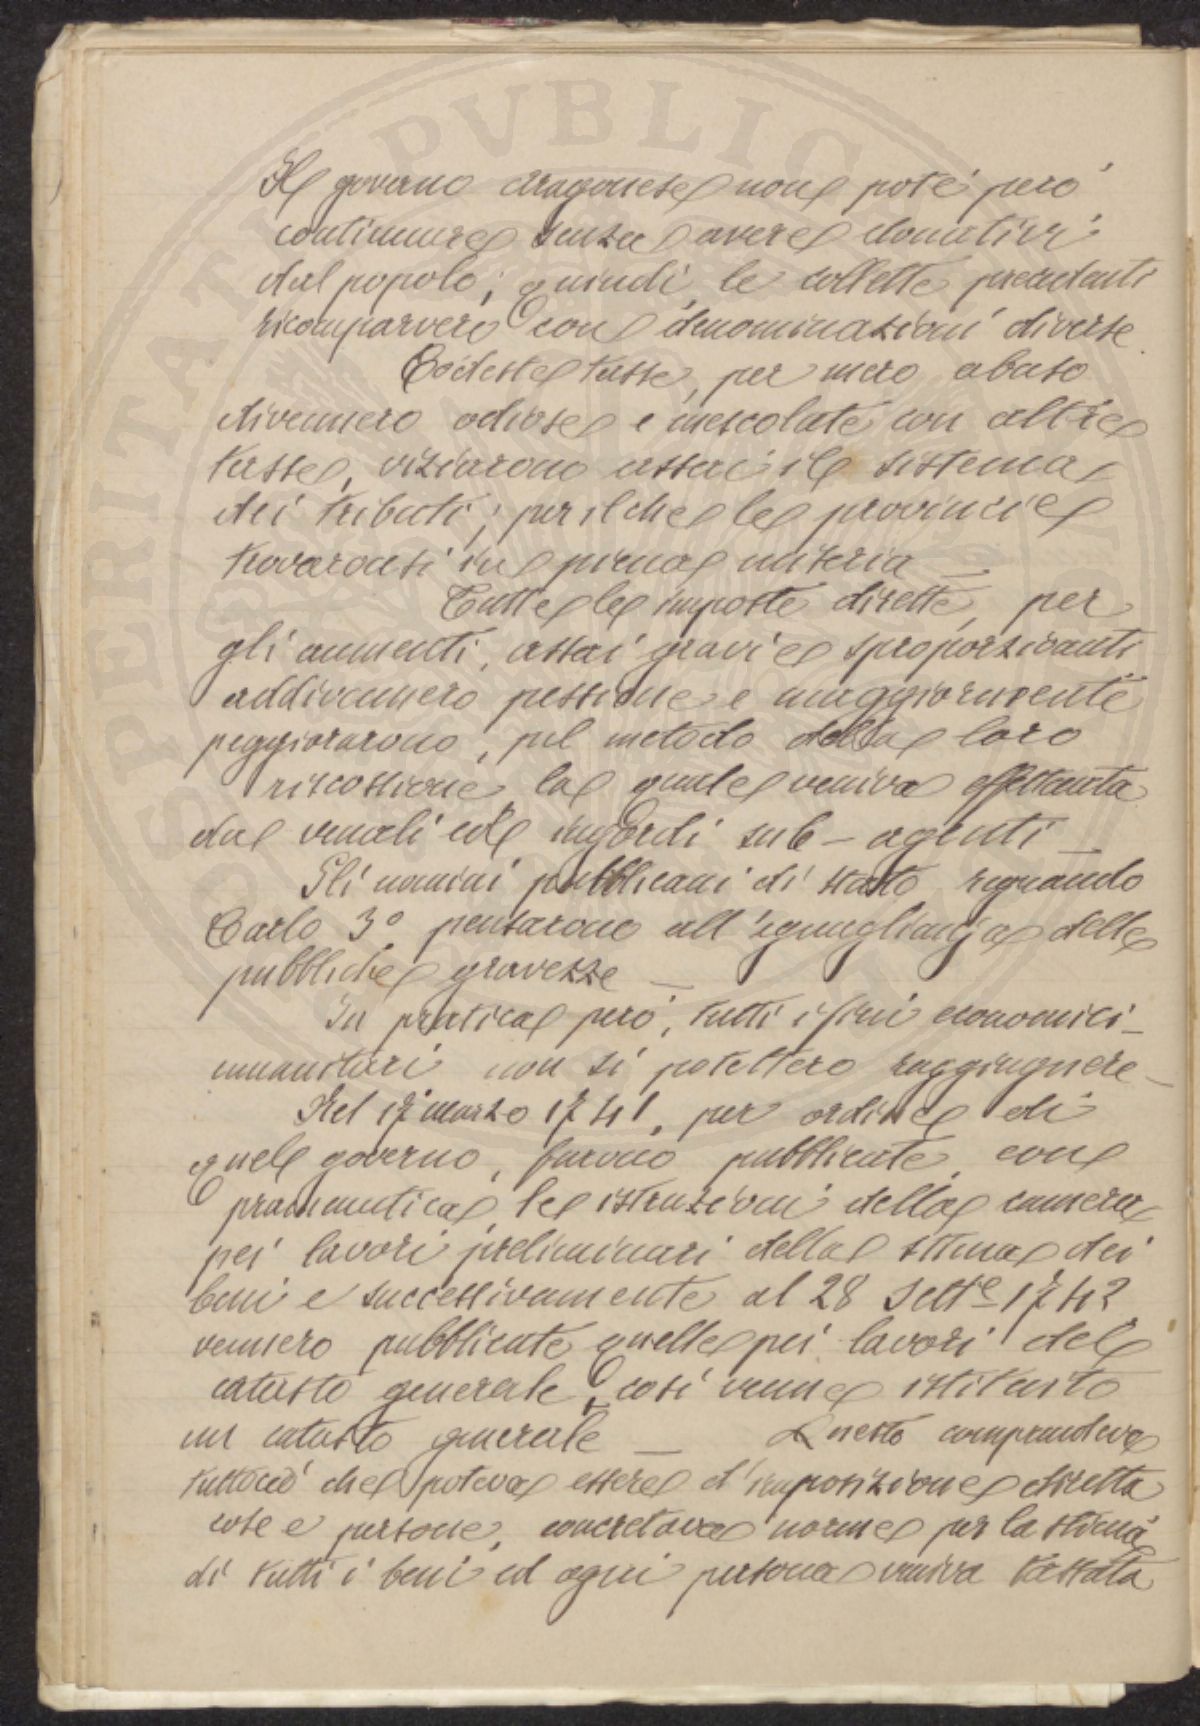 Il governo aragonese non poté però
continuare senza avere donativi
dal popolo; quindi, le collette precedenti
ricomparvero con denominazioni diverse.
Codeste tasse, per mero abuso
divennero odiose e mescolate con altre
tasse, viziarono assai il sistema
dei tributi; per il che le provincie
trovaronsi in piena miseria —
Tutte le imposte dirette, per
gli aumenti, assai gravi e sproporzionanti
addivennero pessime e maggiormente
peggiorarono, pel metodo della loro
riscossione la quale veniva effettuata
da venali ed ingordi sub-agenti —
Gli uomini pubblicani di stato, regnando
Carlo 3° pensarono all'eguaglianza delle
pubbliche gravezze —
In pratica però, tutti i fini economici-
umanitari non si potettero raggiugnere —
Nel 17 marzo 1741, per ordine di
quel governo, furono pubblicate, con
prammatica, le istruzioni della camera
pei lavori preliminari della stima dei
beni e successivamente al 28 Sett.e 1742
vennero pubblicate quelle pei lavori del
catasto generale, così venne istituito
un catasto generale — Questo comprendeva
tuttociò che poteva essere d'imposizione diretta
cose e persone, concretava norme per la stima
di tutti i beni ed ogni persona veniva tassata